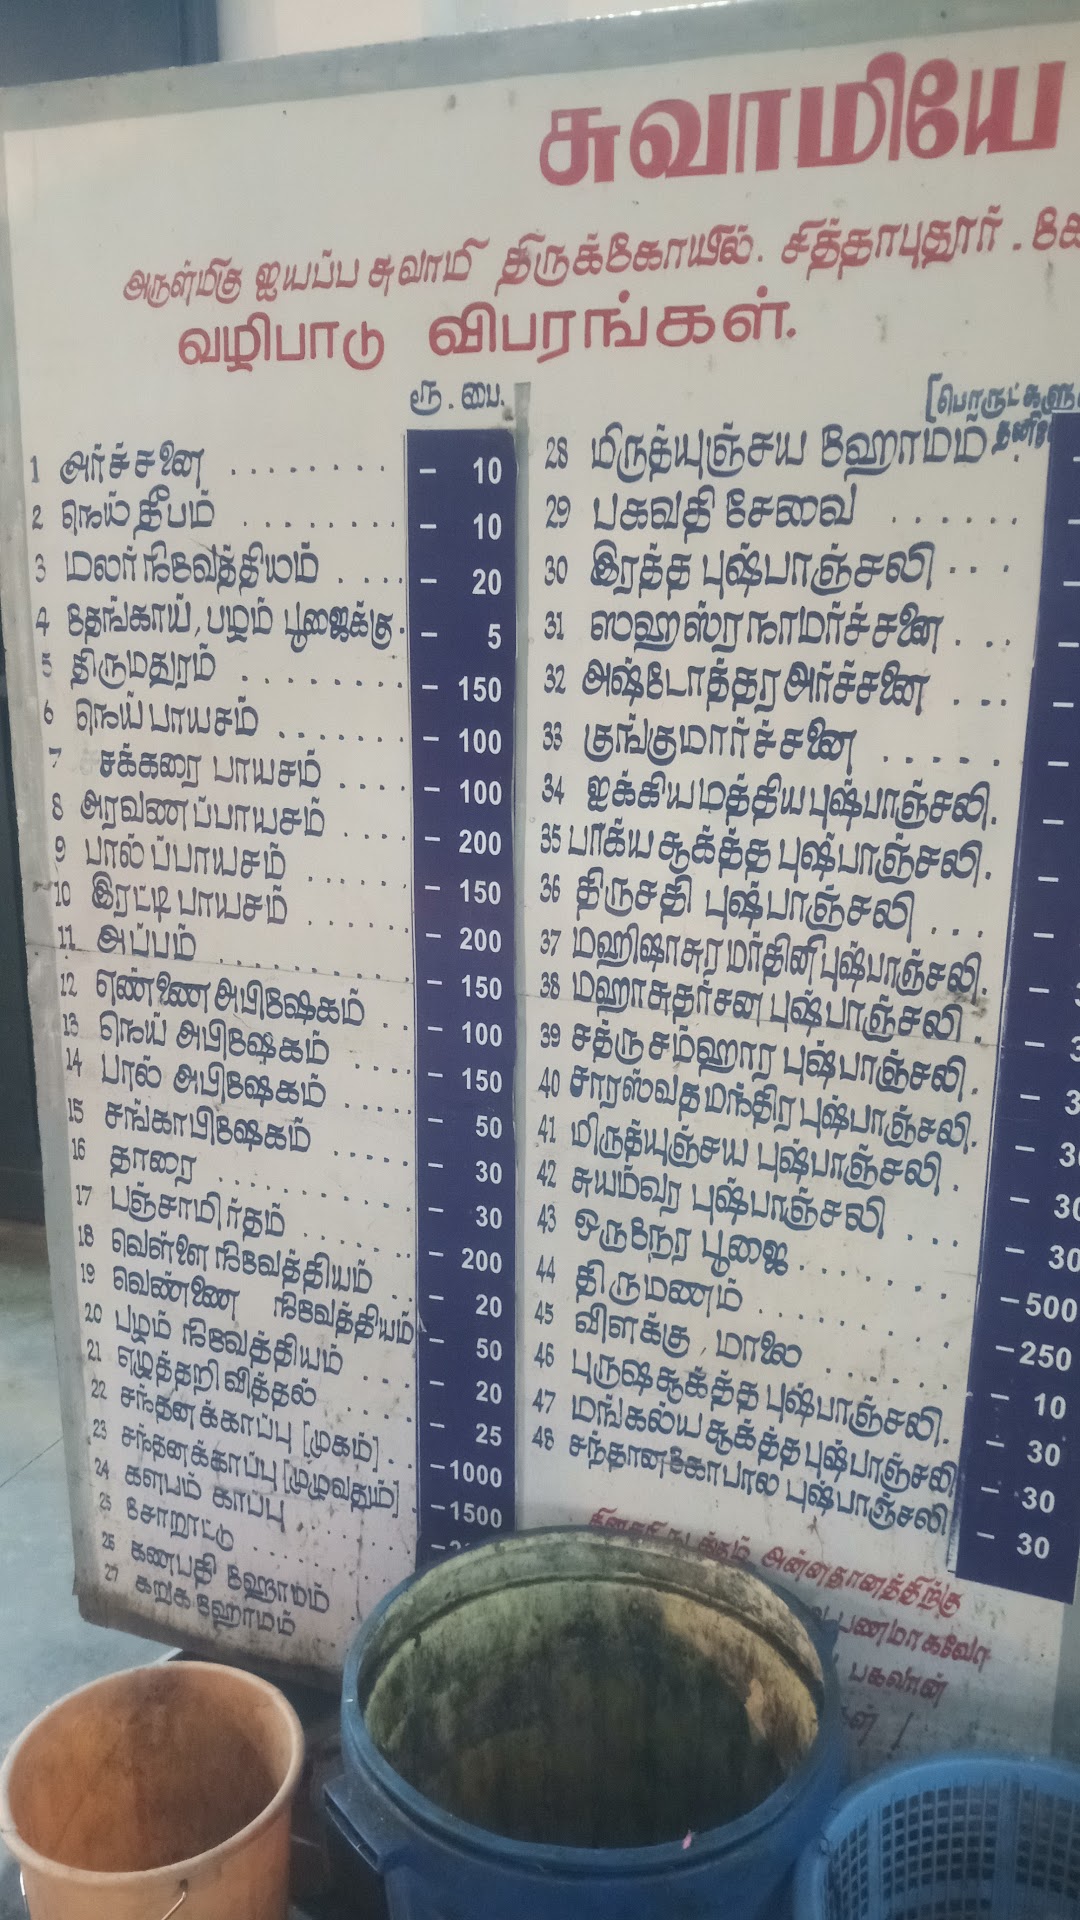 சுவாமியே
அருள்மிகு ஐயப்ப சுவாமி திருக்கோயில். சித்தாபுதூர். கோ
வழிபாடு விபரங்கள்.
ரூ. பை.
1 அர்ச்சனை ........ - 10
2 நெய் தீபம் ......... - 10
3 மலர் நிவேத்தியம் .... - 20
4 தேங்காய், பழம் பூஜைக்கு. - 5
5 திருமதுரம் ......... - 150
6 நெய் பாயசம் ....... - 100
7 சக்கரை பாயசம் .... - 100
8 அரவணப்பாயசம் .... - 200
9 பால் ப்பாயசம் ...... - 150
10 இரட்டி பாயசம் ...... - 200
11 அப்பம் .......... - 150
12 எண்ணை அபிஷேகம் .. - 100
13 நெய் அபிஷேகம் .... - 150
14 பால் அபிஷேகம் ..... - 50
15 சங்காபிஷேகம் ..... - 30
16 தாரை .......... - 30
17 பஞ்சாமிர்தம் ...... - 200
18 வெள்ளை நிவேத்தியம் .. - 20
19 வெண்ணை நிவேத்தியம் - 50
20 பழம் நிவேத்தியம் ... - 20
21 எழுத்தறிவித்தல் ..... - 25
22 சந்தனக்காப்பு [முகம்] .. - 1000
23 சந்தனக்காப்பு [முழுவதும்] . - 1500
24 களபம் காப்பு
25 சோறூட்டு
26 கணபதி ஹோமம்
27 கறுக ஹோமம்
[பொருட்களு
28 மிருத்யுஞ்சய ஹோமம்
29 பகவதி சேவை ......
30 இரத்த புஷ்பாஞ்சலி ...
31 ஸஹஸ்ரநாமார்ச்சனை ...
32 அஷ்டோத்தர அர்ச்சனை ...
33 குங்குமார்ச்சனை .....
34 ஐக்கியமத்திய புஷ்பாஞ்சலி.
35 பாக்ய சூக்த்த புஷ்பாஞ்சலி.
36 திருசதி புஷ்பாஞ்சலி ...
37 மஹிஷாசுர மர்தினி புஷ்பாஞ்சலி.
38 மஹாசுதர்சன புஷ்பாஞ்சலி .
39 சத்ரு சம்ஹார புஷ்பாஞ்சலி.
40 சாரஸ்வதமந்திர புஷ்பாஞ்சலி.
41 மிருத்யுஞ்சய புஷ்பாஞ்சலி .
42 சுயம்வர புஷ்பாஞ்சலி ...
43 ஒருநேர பூஜை ....... - 500
44 திருமணம் ........ - 250
45 விளக்கு, மாலை ....... - 10
46 புருஷசூக்த்த புஷ்பாஞ்சலி. - 30
47 மங்கல்ய சூக்த்த புஷ்பாஞ்சலி - 30
48 சந்தானகோபால புஷ்பாஞ்சலி - 30
அன்னதானத்திற்கு
பணமாகவோ
பகவான்